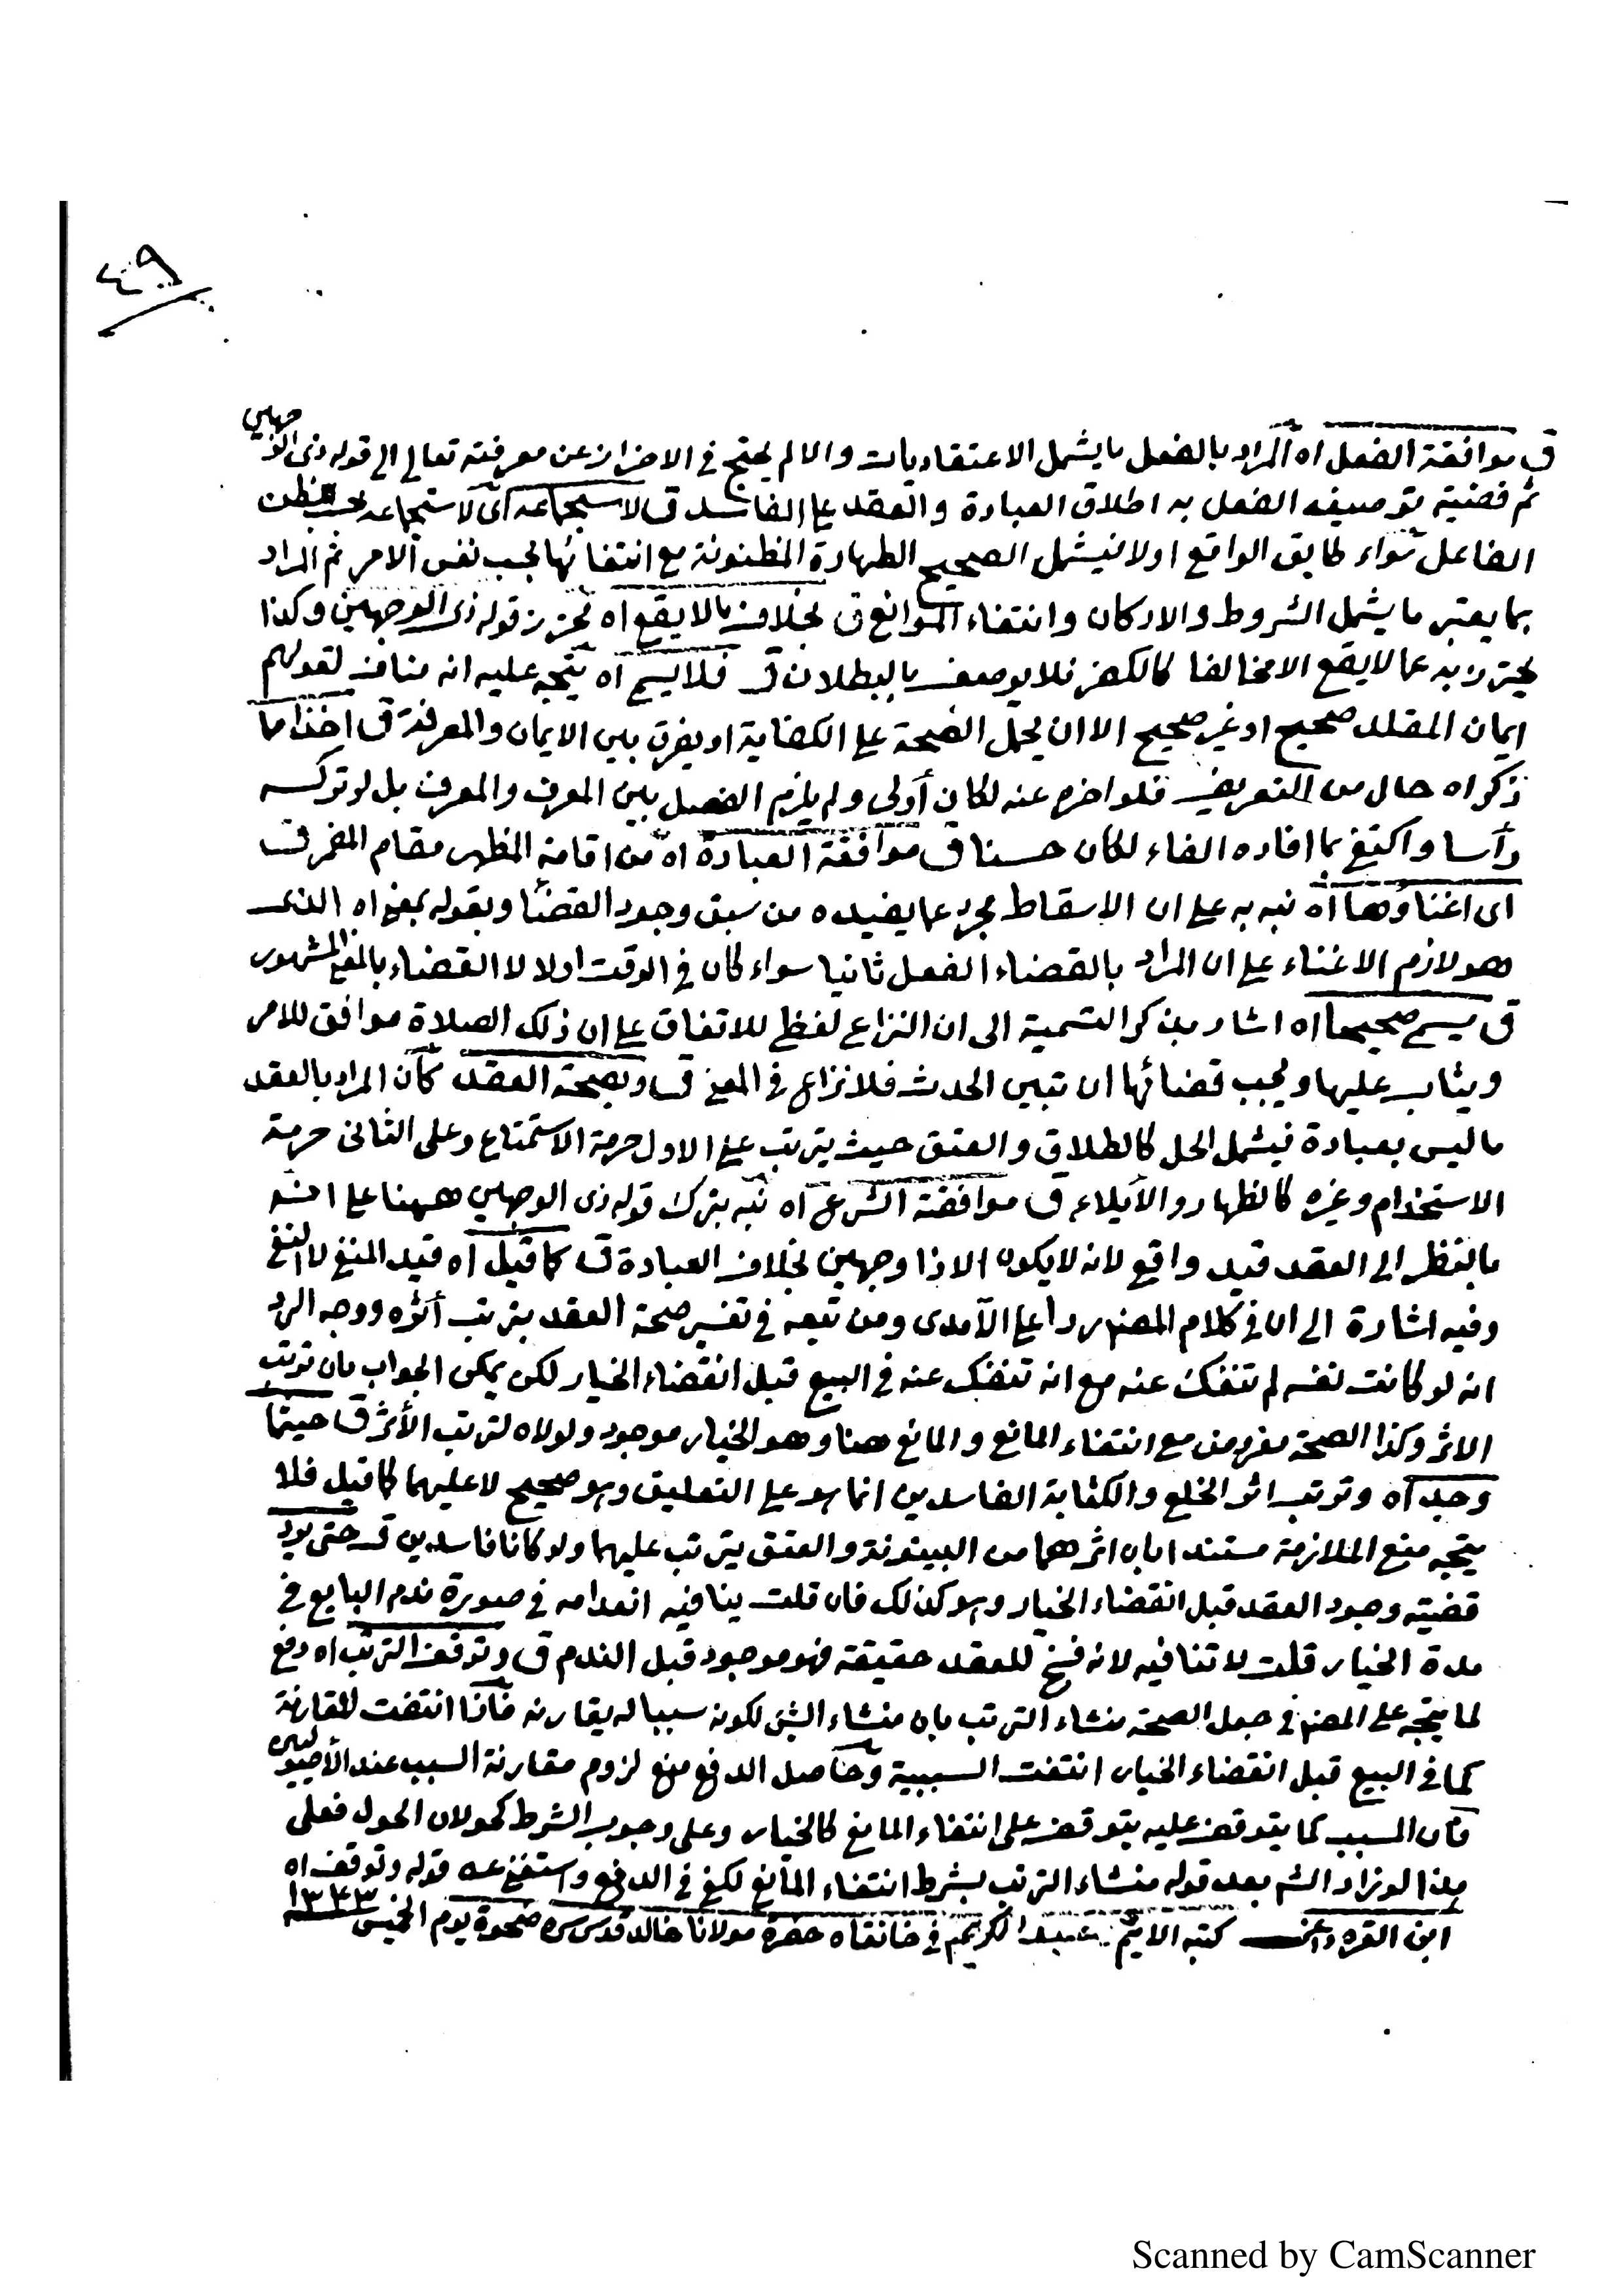 ٤٩
ق موافقة الفعل اه المراد بالفعل ما يشمل الاعتقاديات والا لم يحتج في الاحتراز عن معرفته تعالى الى قوله ذى الوجهين
ثم قضية توصيف الفعل به اطلاق العبادة والعقد على الفاسد ق لاستجماعه اى لاستجماعه بحسب ظن
الفاعل سواء طابق الواقع اولا فيشمل الصحيح الطهارة المظنونة مع انتفائها بحسب نفس الامر ثم المراد
بما يعتبر ما يشمل الشروط والاركان وانتفاء الموانع ق بخلاف ما لا يقع اه محترز قوله ذى الوجهين وكذا
يحترز به عما لا يقع الا مخالفا كالكفر فلا يوصف بالبطلان ق فلا يسمى اه يتجه عليه انه مناف لقولهم
ايمان المقلد صحيح او غير صحيح الا ان يحمل الصحة على الكفاية او يفرق بين الايمان والمعرفة ق اخذا مما
ذكر اه حال من التعريف فلو اخره عنه لكان أولى ولم يلزم الفصل بين المعرف والمعرف بل لو تركه
رأسا واكتفى بما افاده الفاء لكان حسنا ق موافقة العبادة اه من اقامة المظهر مقام المضمر ق
اى اغناؤها اه نبه به على ان الاسقاط مجرد عما يفيده من سبق وجود القضاء وبقوله بمعنى اه الذى
هو لازم الاغناء على ان المراد بالقضاء الفعل ثانيا سواء كان في الوقت اولا لا القضاء بالمعنى المشهور
ق يسمى صحيحا اه اشار بذكر التسمية الى ان النزاع لفظى للاتفاق على ان ذلك الصلاة موافق للامر
ويثاب عليها ويجب قضائها ان تبين الحدث فلا نزاع في المعنى ق وبصحة العقد كأن المراد بالعقد
ما ليس بعبادة فيشمل الحل كالطلاق والعتق حيث يترتب على الاول حرمة الاستمتاع وعلى الثانى حرمة
الاستخدام وغيره كالظهار والايلاء ق موافقة الشرع اه نبه بترك قوله ذى الوجهين ههنا على انه
بالنظر الى العقد قيد واقع لانه لا يكون الا ذا وجهين بخلاف العبادة ق كما قيل اه قيد المنفى لا النفى
وفيه اشارة الى ان في كلام المصنف ردا على الآمدى ومن تبعه في تفسير صحة العقد بترتب أثره ووجه الرد
انه لو كانت نفسه لم تنفك عنه مع انه تنفك عنه في البيع قبل انقضاء الخيار لكن يمكن الجواب بان ترتب
الاثر وكذا الصحة مفروض مع انتفاء المانع والمانع هنا وهو الخيار موجود ولولاه لترتب الأثر ق حيثما
وجد اه وترتب اثر الخلع والكتابة الفاسدين انما هو على التعليق وهو صحيح لا عليهما كما قيل فلا
يتجه منع الملازمة مستندا بان اثرهما من البينونة والعتق يترتب عليهما ولو كانا فاسدين ق حتى يرد
قضيته وجود العقد قبل انقضاء الخيار وهو كذلك فان قلت ينافيه انعدامه في صورة ندم البايع في
مدة الخيار قلت لا تنافيه لانه فسخ للعقد حقيقة فهو موجود قبل الندم ق وتوقف الترتب اه دفع
لما يتجه على المصنف في جعل الصحة منشاء الترتب بان منشاء الشئ لكونه سببا له يقارنه فاذا انتفت المقارنة
كما في البيع قبل انقضاء الخيار انتفت السببية وحاصل الدفع منع لزوم مقارنة السبب عند الأصوليين
فان المسبب كما يتوقف عليه يتوقف على انتفاء المانع كالخيار وعلى وجوب الشرط كحولان الحول فعلى
هذا لو زاد الشارح بعد قوله منشاء الترتب بشرط انتفاء المانع لكفى في الدفع واستغنى عن قوله وتوقف اه
ابن القره داغى كتبه الاثيم عبد الكريم في خانقاه حضرة مولانا خالد قدس سره ضحوة يوم الخميس ١٣٤٣
Scanned by CamScanner